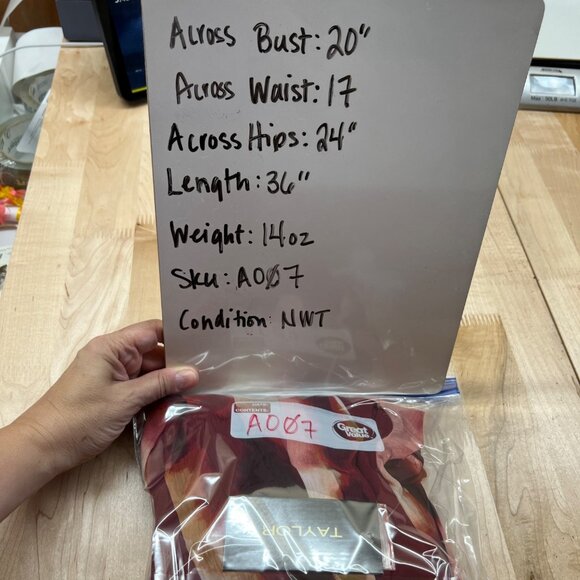 Across Bust: 20"
Across Waist: 17
Across Hips: 24"
Length: 36"
Weight: 14oz
Sku: A0Ø7
Condition: NWT
CONTENTS:
A0Ø7
Great Value
TAYLOR